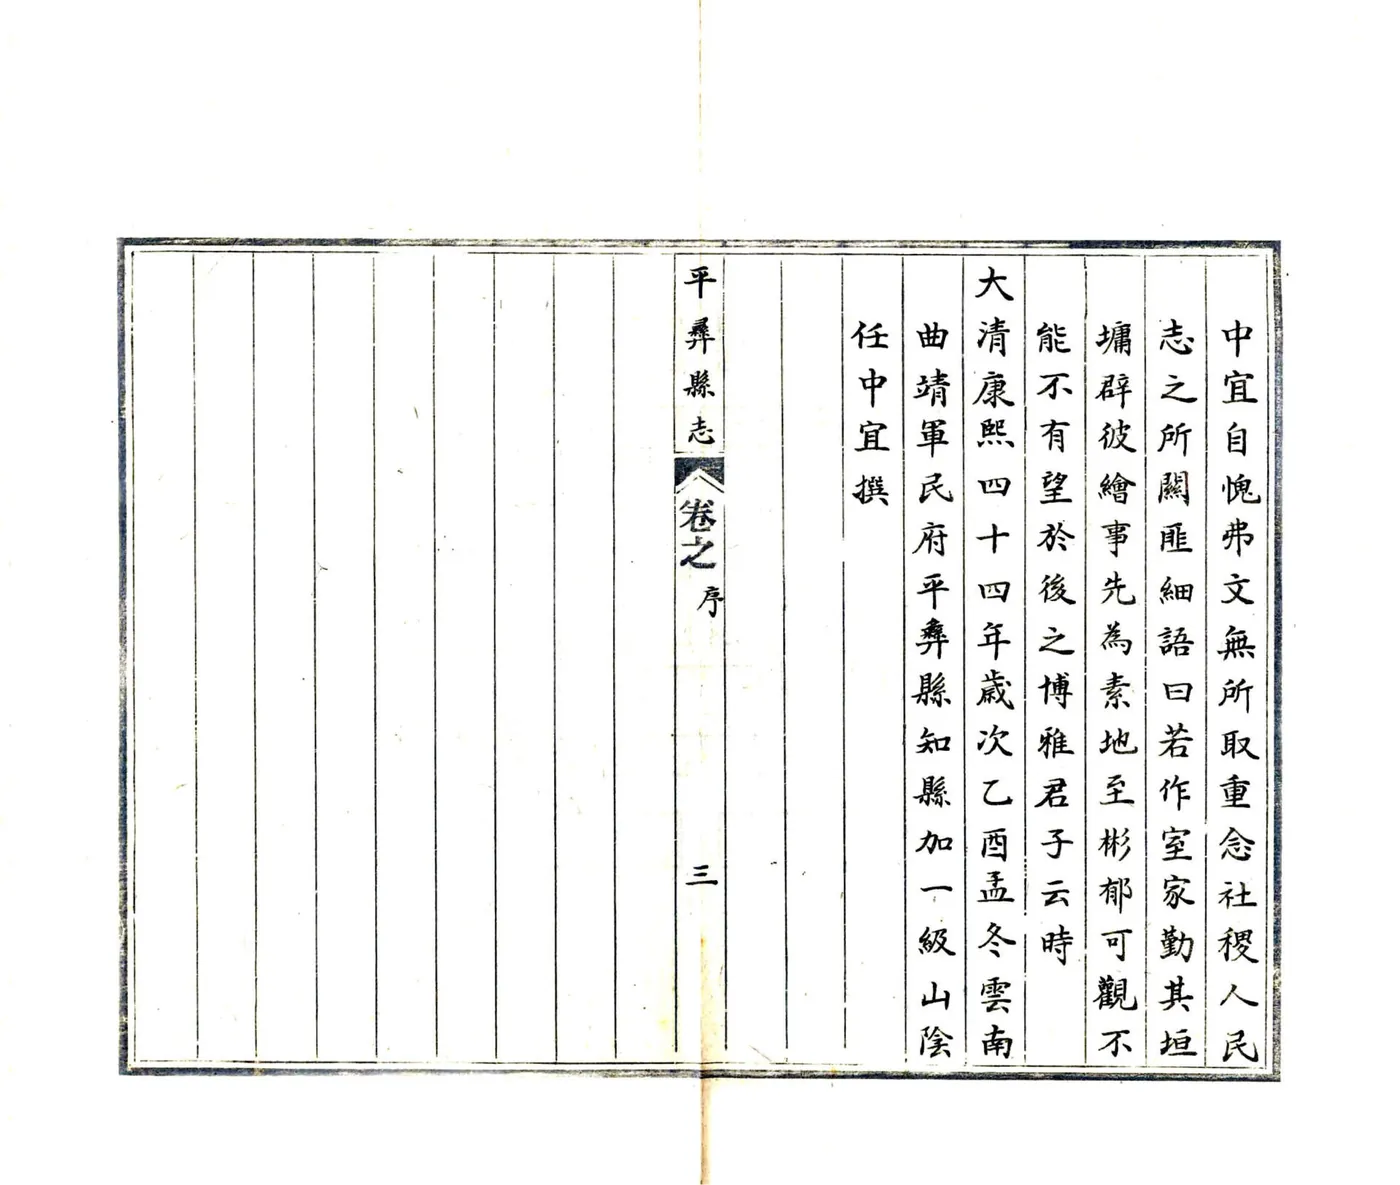 中宜自愧弗文無所取重念社稷人民
志之所關匪細語曰若作室家勤其垣
墉辟彼繪事先為素地至彬郁可觀不
能不有望於後之博雅君子云時
大清康熙四十四年歲次乙酉孟冬雲南
曲靖軍民府平彝縣知縣加一級山陰
任中宜撰
平彝縣志
卷之
序
三